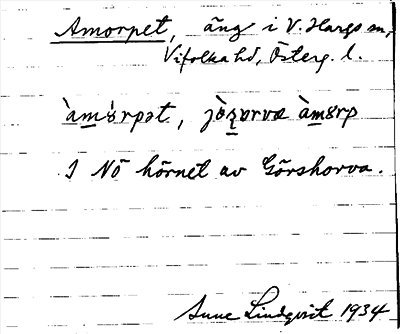 Amorpet, äng i V. Hargs sn,
Vifolka hd, Österg. l.
àm̲òrpət,
I NÖ hörnet av Görshorva.
Sune Lindqvist 1934